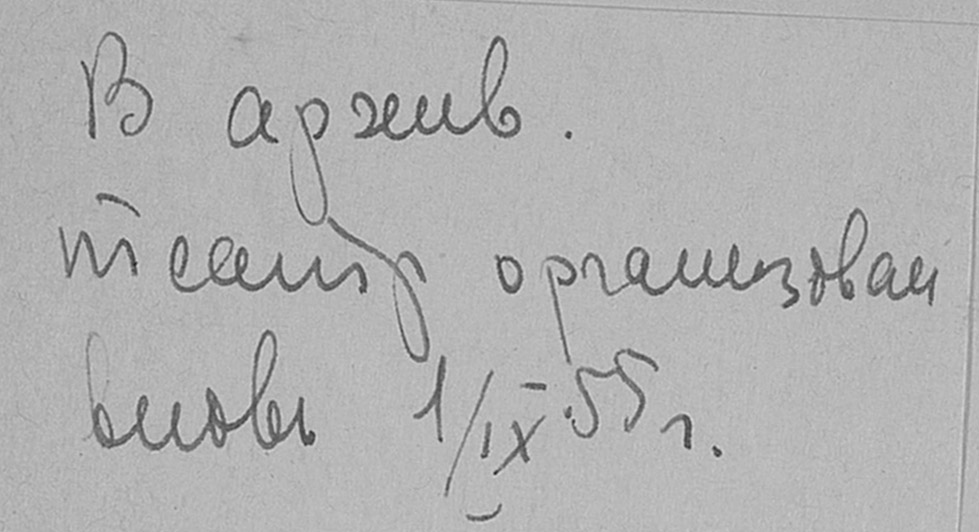 В архив.
театр организован
вновь 1/IX-55 г.